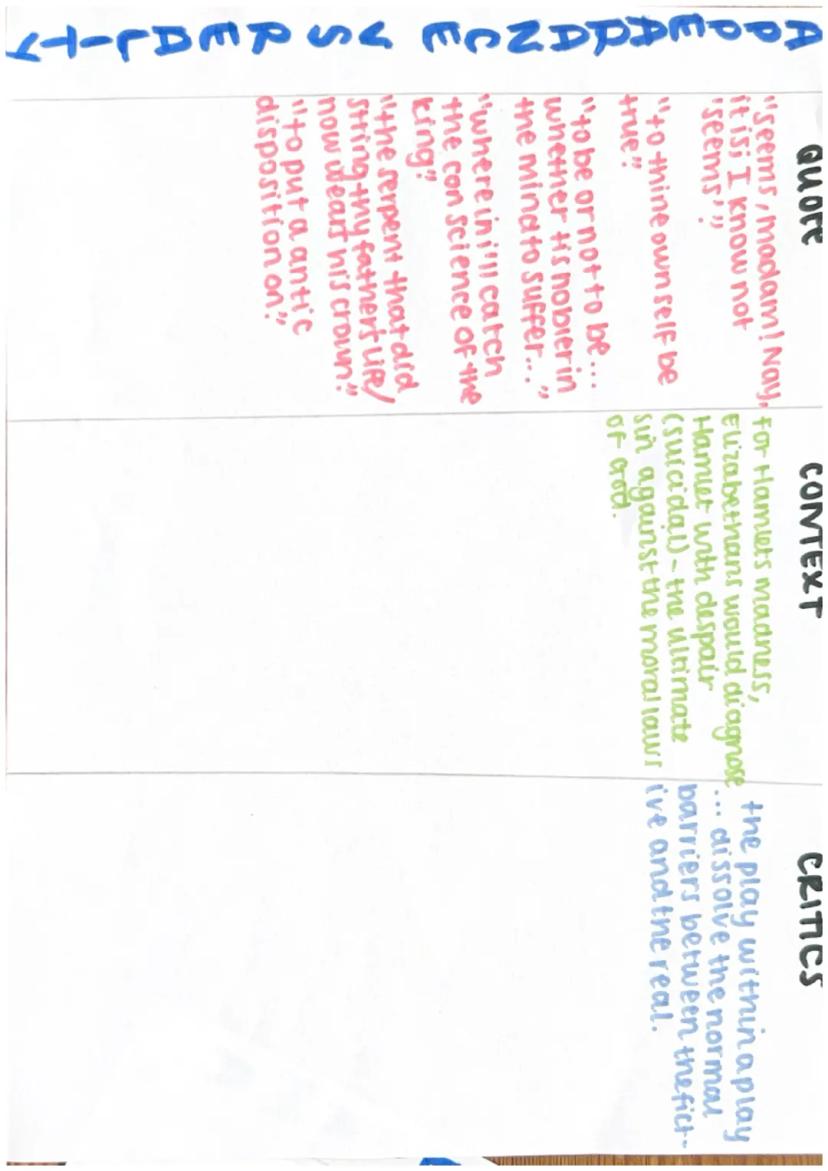 APPEARANCE VS REALITY
QUOTE
"seems, madam! Nay,
it is; I know not
'seems'"
"to thine own self be
true"
"to be or not to be...
whether tis nobler in
the mind to suffer..."
"where in i'll catch
the con science of the
king"
"the serpent that did
string thy father's life/
now wears his crown"
"to put a antic
disposition on"
CONTEXT
for Hamlets madness,
Elizabethans would diagnose
Hamlet with despair
(suicidal) - the ultimate
sin against the moral laws
of God.
CRITICS
the play within a play
... dissolve the normal
barriers between the fict-
ive and the real.